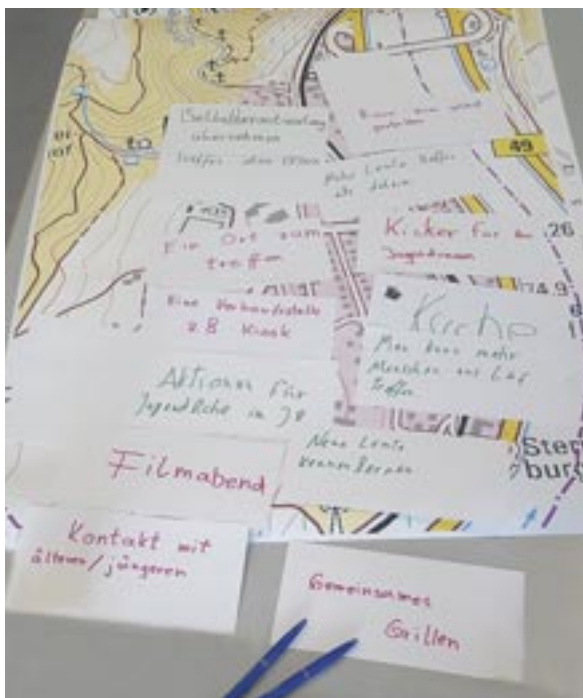 Selbstverantwortung
übernehmen
Treffen ohne Eltern
Mehr Leute treffen
als daheim
49
Ein Ort zum
treffen
Kicker für
Jugendraum
26
74.9
Eine Verkaufsstelle
z.B Kiosk
Küche
Man kann mehr
Menschen aus
treffen
Aktionen für
Jugendliche im
Neue Leute
kennenlernen
Filmabend
Ster
burg
Kontakt mit
älteren/jüngeren
Gemeinsames
Grillen